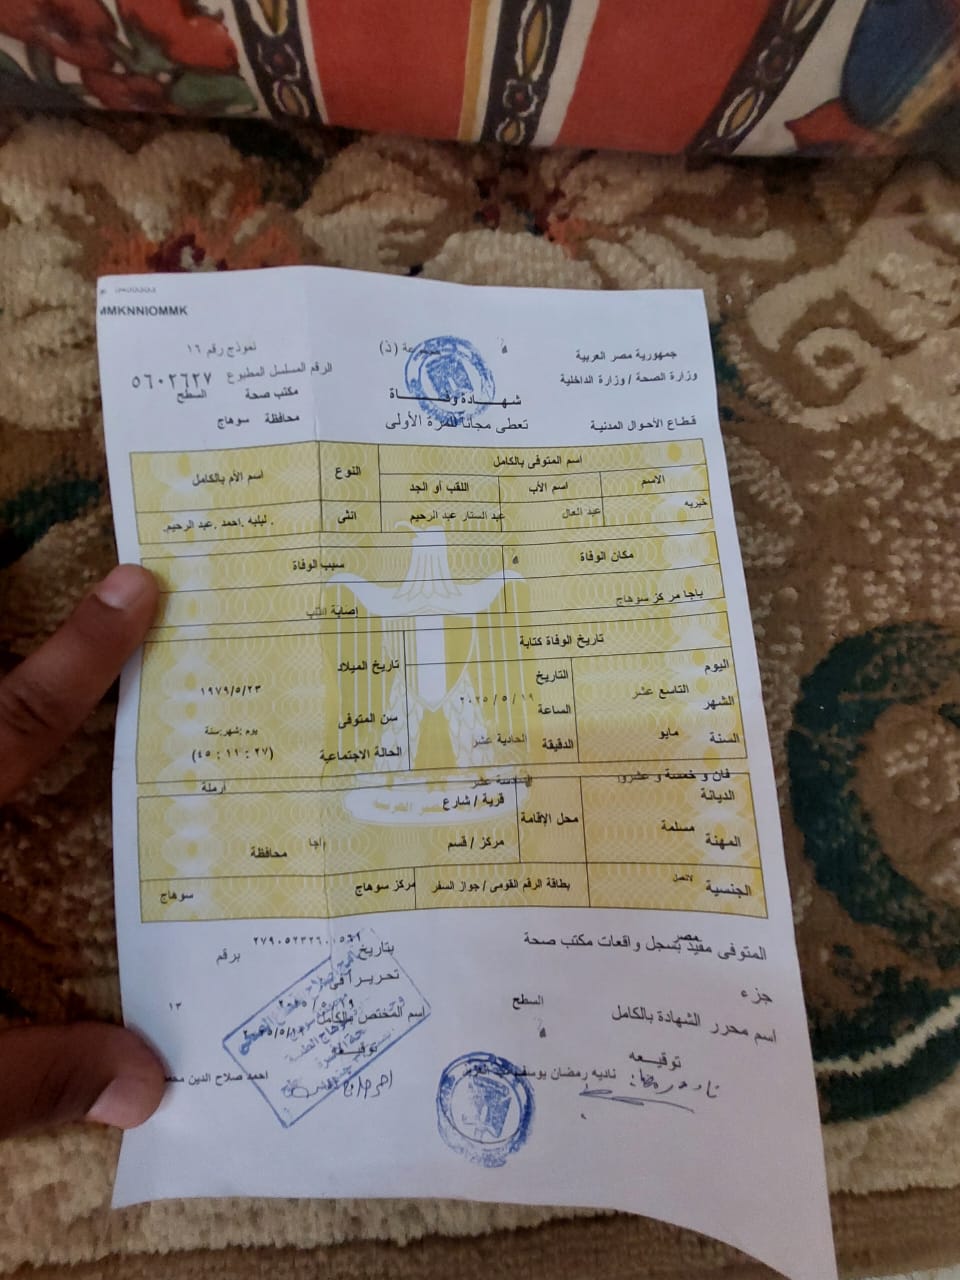 MMKNNIOMMK
جمهورية مصر العربية
وزارة الصحة / وزارة الداخلية
قطاع الأحوال المدنية
(ذ)
شهادة وفاة
تعطى مجانا للمرة الأولى
نموذج رقم ١٦
الرقم المسلسل المطبوع ٥٦٠٢٦٣٧
مكتب صحة السطح
محافظة سوهاج
اسم المتوفى بالكامل
النوع
اسم الأم بالكامل
الاسم
اسم الأب
اللقب أو الجد
خيريه
عبد العال
عبد الستار عبد الرحيم
انثى
ليليه .احمد .عبد الرحيم.
مكان الوفاة
سبب الوفاة
باجا مركز سوهاج
إصابة
تاريخ الوفاة كتابة
تاريخ الميلاد
اليوم
التاريخ
١٩٧٩/٥/٢٣
التاسع عشر
٢٠٢٥ / ٥ / ١٩
الشهر
الساعة
سن المتوفى
مايو
الحادية عشر
يوم :شهر:سنة
السنة
الدقيقة
الحالة الاجتماعية
(٤٥ : ١١ : ٢٧)
فان و خمسة و عشرون
السادسة عشر
ارملة
الديانة
مسلمة
محل الإقامة
قرية / شارع
باجا
المهنة
مركز / قسم
محافظة
الجنسية
بطاقة الرقم القومى / جواز السفر
مركز سوهاج
سوهاج
المتوفى مقيد بسجل واقعات مكتب صحة
مصر
بتاريخ
برقم
جزء
السطح
تحريرا في
١٣
اسم محرر الشهادة بالكامل
اسم المختص بالكامل
توقيعه
ناديه رمضان يوسف
توقيعه
احمد صلاح الدين